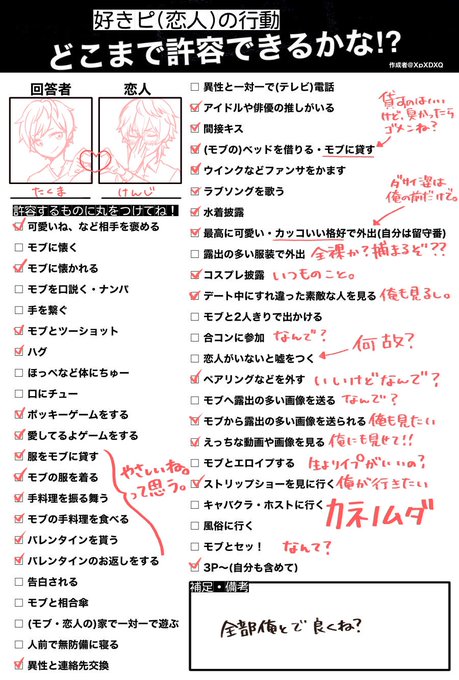 好きピ(恋人)の行動
どこまで許容できるかな!?
作成者@XpXDXQ
回答者
恋人
たくま
けんじ
許容するものに丸をつけてね！
可愛いね、など相手を褒める
モブに懐く
モブに懐かれる
モブを口説く・ナンパ
手を繋ぐ
モブとツーショット
ハグ
ほっぺなど体にちゅー
口にチュー
ポッキーゲームをする
愛してるよゲームをする
服をモブに貸す
モブの服を着る
手料理を振る舞う
モブの手料理を食べる
バレンタインを貰う
バレンタインのお返しをする
やさしいね。
って思う。
告白される
モブと相合傘
(モブ・恋人の)家で一対一で遊ぶ
人前で無防備に寝る
異性と連絡先交換
異性と一対一で(テレビ)電話
アイドルや俳優の推しがいる
間接キス
(モブの)ベッドを借りる・モブに貸す
貸すのはいい
けど、臭かったら
ゴメンね？
ウインクなどファンサをかます
ラブソングを歌う
水着披露
ダサイ姿は
俺の前だけで。
最高に可愛い・カッコいい格好で外出(自分は留守番)
露出の多い服装で外出 全裸か？捕まるぞ??
コスプレ披露 いつものこと。
デート中にすれ違った素敵な人を見る 俺も見るし。
モブと2人きりで出かける
合コンに参加 なんで？
恋人がいないと嘘をつく 何故？
ペアリングなどを外す いいけどなんで？
モブへ露出の多い画像を送る なんで？
モブから露出の多い画像を送られる 俺も見たい
えっちな動画や画像を見る 俺にも見せて!!
モブとエロイプする 生よりイプがいいの？
ストリップショーを見に行く 俺が行きたい
キャバクラ・ホストに行く
風俗に行く
カネノムダ
モブとセッ！ なんで？
3P〜(自分も含めて)
補足・備考
全部俺とで良くね？